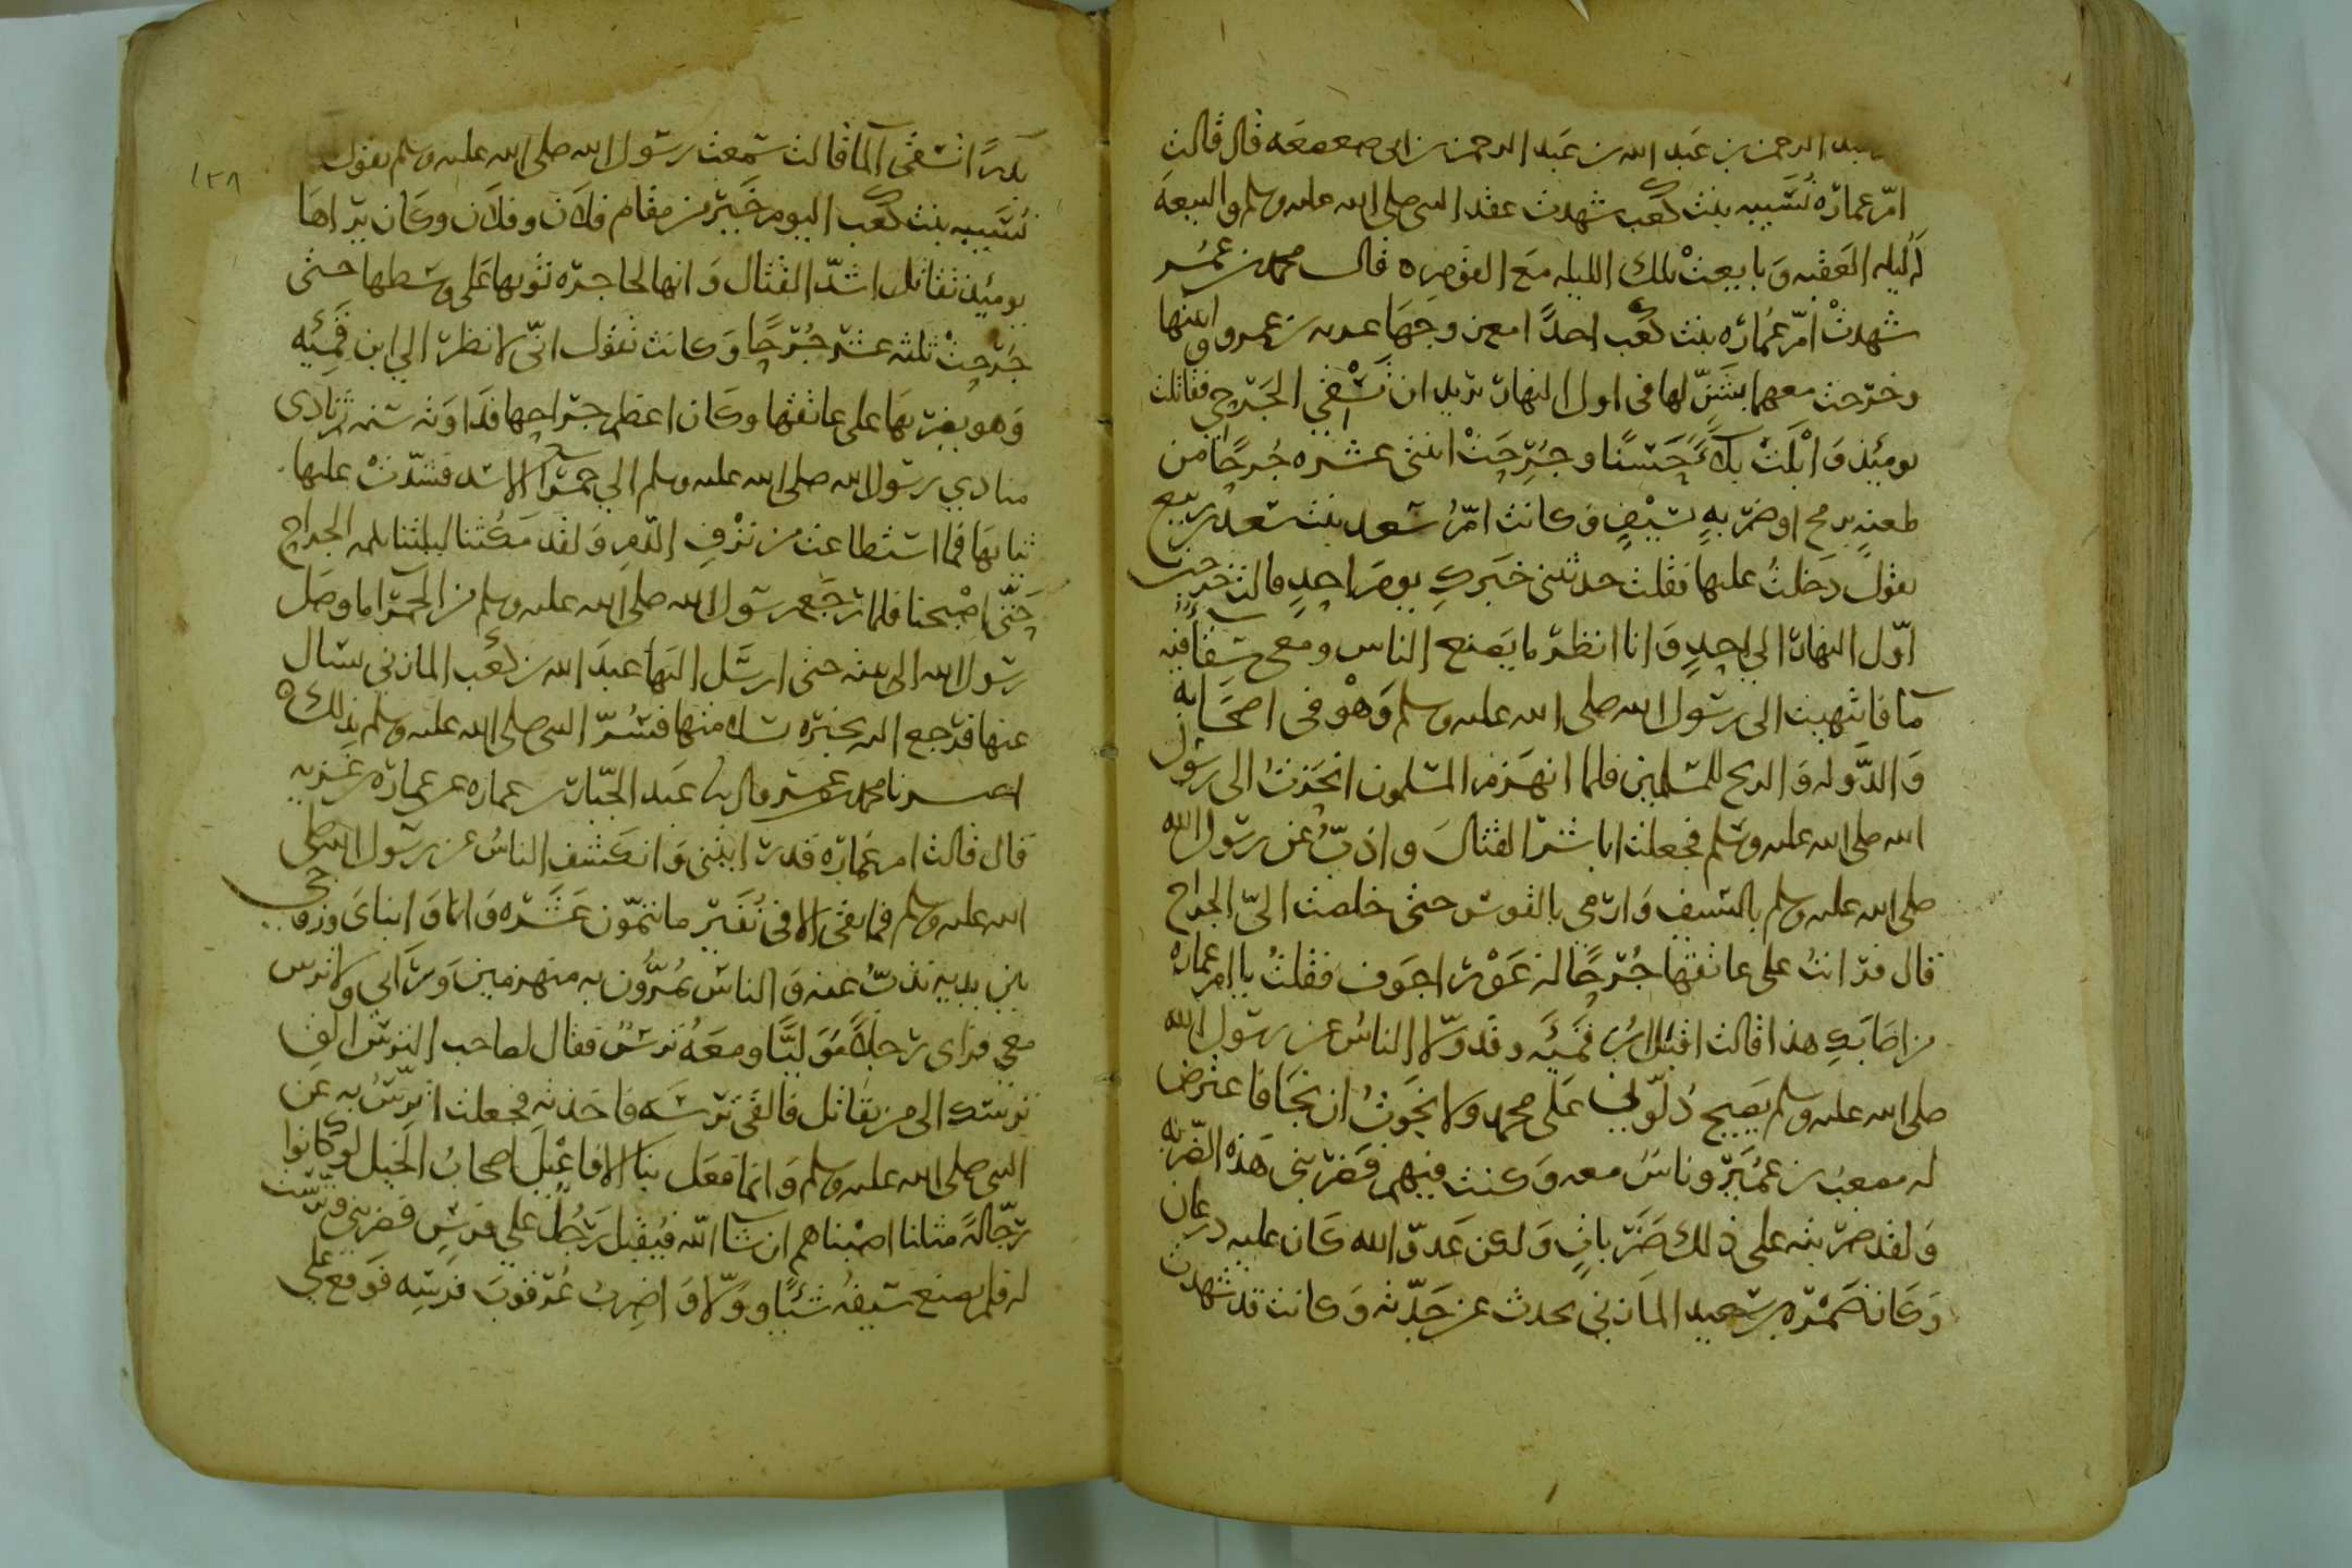 عبد الرحمن بن عبد الله بن عبد الرحمن بن ابى صعصعه قال قالت
امّ عماره نُسَيبه بنت كعب شهدت عقد النبى صلى الله عليه وسلم والبيعه
لَه ليله العَقبه وَبايعتْ تلك الليله مَع القوم ه قال محمد بن عُمَر
شهدتْ امّ عُمَاره بنت كعب احدًا مع زوجهَا غزيه بن عمرو وابنيها
وخرجت معهما بشَنّ لها فى اول النهار تريد ان تَسْقي الجَرحي فقاتلت
يومئِذ وَابْلَتْ بلآءً حَسنًا وجُرِحَتْ اثنى عشره جُرحًا من
طعنهٍ برمح او ضربهٍ بسَيْفٍ فكانت امّ سَعد بنت سَعد بن ربيع
تقول دَخلتُ عليها فقلت حدثينى خبَركِ يومَ احدٍ قالت خرجت
اوّل النهار الي احدٍ وَانا انظر ما يَصنع الناس ومعى سِقآءٌ فيه
مآ فانتهيت الى رسول الله صلى الله عليه وسلم وَهْوَ فى اصحَابه
وَالدَّوله وَالريح للمسلمين فلما انهَزم المسلمون انحَزتُ الى رسول
الله صلى الله عليه وسلم فجعلت اباشر القتالَ واذبّ عن رسول الله
صلى الله عليه وسلم بالسيف وَارمى بالقوس حتى خلصت اليّ الجراح
قال فرانتُ على عاتقها جُرحًا له غَوْر اجوف فقلتُ يا ام عماره
من اصَابَكِ هذا قالت اقبل ابن قَميَّه وقد ولّا الناسُ عن رسول الله
صلى الله عليه وسلم يَصيح دُلّوني عَلى محمد ولا نجَوتُ ان نجَا فاعترض
له مصعَب بن عُمَيْر وناسٌ معه وَكنت فيهم فَضَربنى هَذه الضّربه
وَلقد ضربته على ذلك ضَرَباتٍ وَلكن عَدوّ الله كَان عليه درعان
وَكانَ ضَمْره بن سَعيد المازني يحدث عن جَدّته وَكانت قد شهدت
١٣٨
بَدرًا تسقى المآ قالت سَمِعت رسول الله صلى الله عليه وسلم يقول
نُسَيبه بنت كعب اليوم خَيْر من مقام فلان وفلان وكَان يراهَا
يومئِذ تقاتل اشدّ القتال وَانها لحاجزه ثوبها عَلى وسَطها حتى
جُرحتْ ثلثه عشر جُرحًا وَكانت تقول انّي لانظر الي ابن قَمِئَيه
وَهو يضربهَا على عاتقها وكَان اعظم جراحها فدَاوته سَنه ثم نادى
منادي رسول الله صلى الله عليه وسلم الي حمرآ الاسد فشدّتْ عليها
ثيابهَا فما استطاعت من نَزْفِ الدّم وَلقد مَكثنا ليلتنا نكمد الجراح
حَتّى اصْبحنا فلما رَجَع رسول الله صلى الله عليه وسلم من الحمرآ ما وصَل
رسول الله الى بيته حتى ارسَل اليهَا عبدَ الله بن كعْب المازنى يسال
عنها فرجع اليه يخبره بسلامتها فسُرّ النبى صلى الله عليه وسلم بذلك ه
اخبرنا محمد بن عمر قال ثنا عَبد الجبّار بن عماره عن عماره بن غَزيه
قال قالت ام عُماره قد رايتنى وَانكشف الناسُ عن رسول الله صلى
الله عليه وسلم فما بقى الا فى نُفَيْر ما يتمّون عَشَره وَانا وَابناىَ وزوجى
بين يديه نذبّ عنه وَالناس يَمُرُّون به منهزمين وَرآنى ولا ترس
معي فراى رَجلاً مُوَليًا ومعَهُ ترسٌ فقال لصاحب الترس الق
ترسك الى من يقاتل فالقى ترسَه فاخذته فجعلت اترسُ به عن
النبى صلى الله عليه وسلم وَانما فعَل بنا الافاعيل اصحابُ الخيل لو كانوا
رجّالهً مثلنا اصبناهم ان شآ الله فيُقبل رجُلٌ على فرسٍ فضربنى وترّست
له فلم يصنع سَيفهُ شيئًا وولّا وَاضربُ عُرقوبَ فرسِه فوقع على